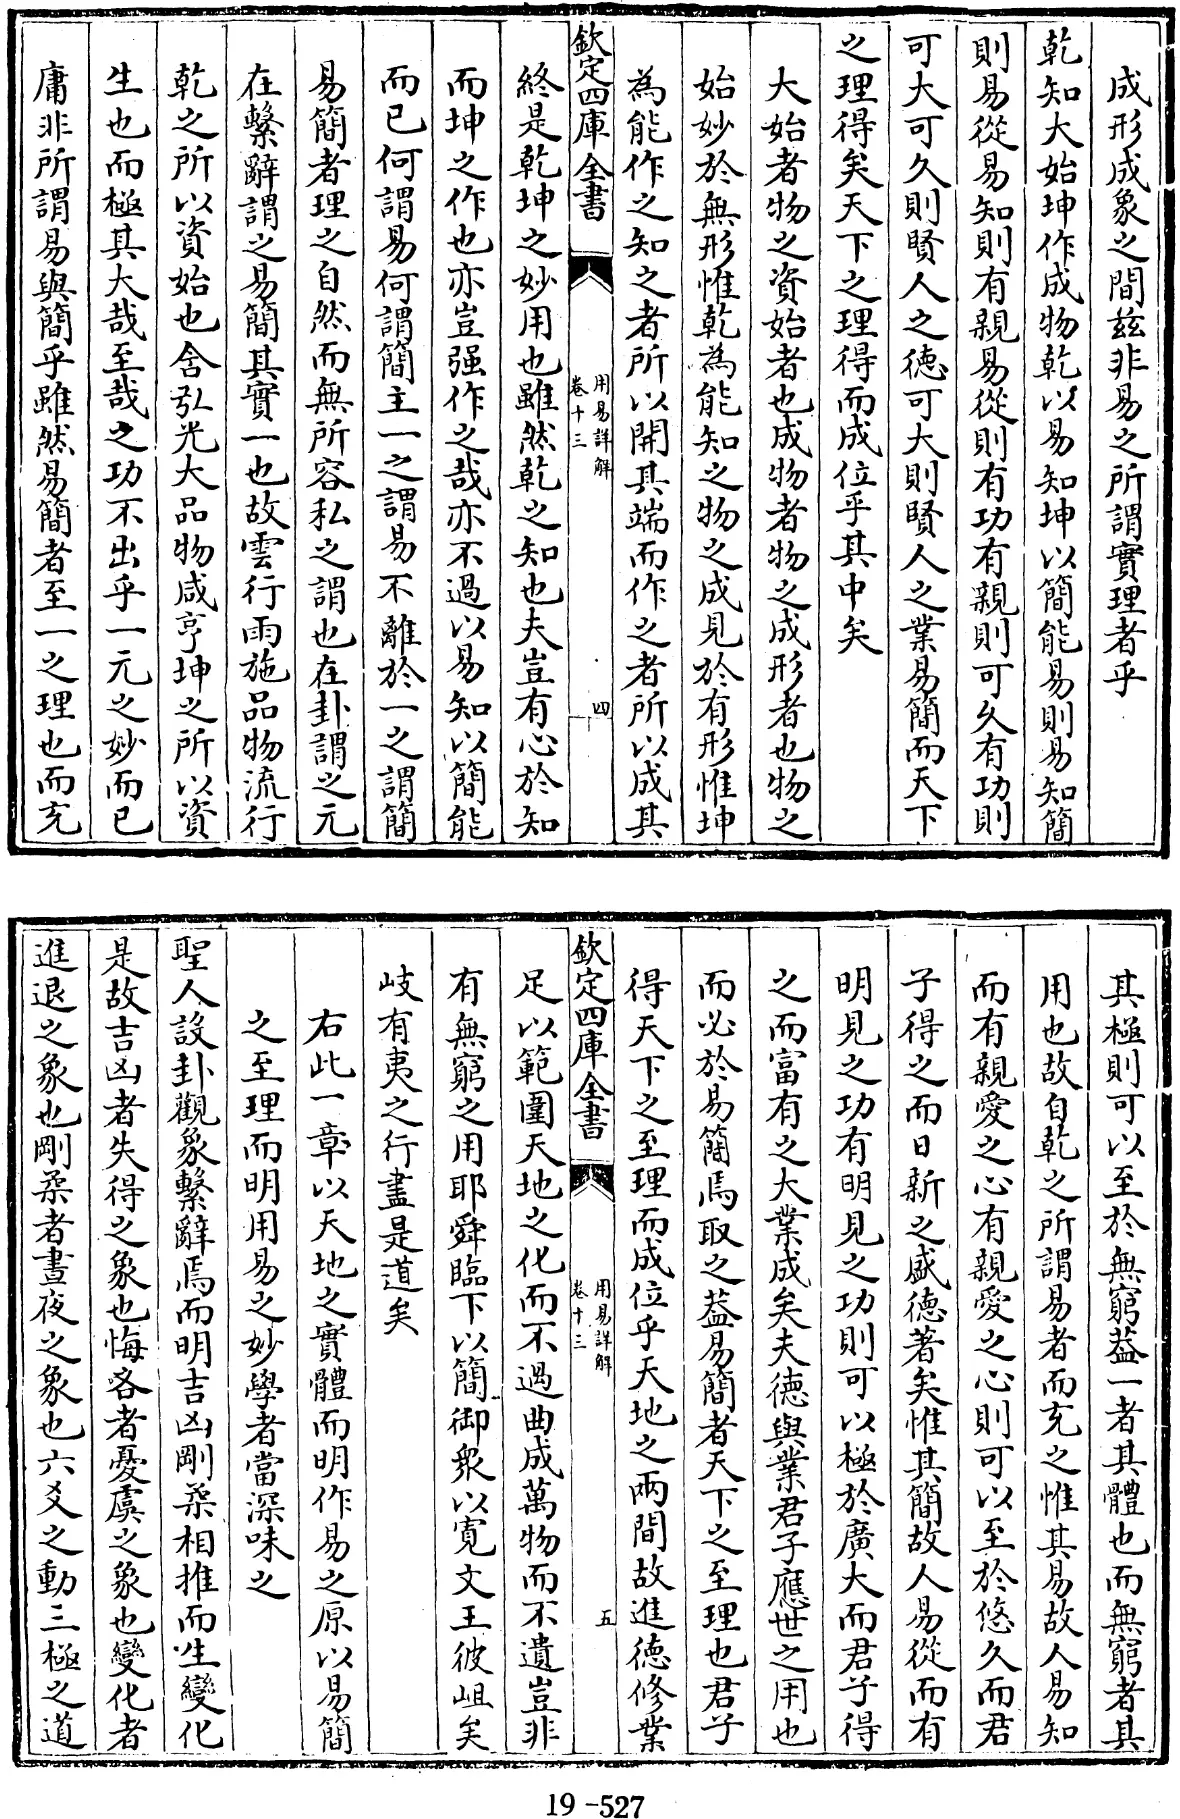 成形成象之間兹非易之所謂實理者乎
乾知大始坤作成物乾以易知坤以簡能易則易知簡
則易從易知則有親易從則有功有親則可久有功則
可大可久則賢人之德可大則賢人之業易簡而天下
之理得矣天下之理得而成位乎其中矣
大始者物之資始者也成物者物之成形者也物之
始妙於無形惟乾為能知之物之成見於有形惟坤
為能作之知之者所以開其端而作之者所以成其
欽定四庫全書
用易詳解
卷十三
四
終是乾坤之妙用也雖然乾之知也夫豈有心於知
而坤之作也亦豈强作之哉亦不過以易知以簡能
而已何謂易何謂簡主一之謂易不離於一之謂簡
易簡者理之自然而無所容私之謂也在卦謂之元
在繫辭謂之易簡其實一也故雲行雨施品物流行
乾之所以資始也含弘光大品物咸亨坤之所以資
生也而極其大哉至哉之功不出乎一元之妙而已
庸非所謂易與簡乎雖然易簡者至一之理也而充
其極則可以至於無窮葢一者其體也而無窮者其
用也故自乾之所謂易者而充之惟其易故人易知
而有親愛之心有親愛之心則可以至於悠久而君
子得之而日新之盛德著矣惟其簡故人易從而有
明見之功有明見之功則可以極於廣大而君子得
之而富有之大業成矣夫德與業君子應世之用也
而必於易簡焉取之葢易簡者天下之至理也君子
得天下之至理而成位乎天地之兩間故進德修業
欽定四庫全書
用易詳解
卷十三
五
足以範圍天地之化而不過曲成萬物而不遺豈非
有無窮之用耶舜臨下以簡御衆以寛文王彼岨矣
岐有夷之行盡是道矣
右此一章以天地之實體而明作易之原以易簡
之至理而明用易之妙學者當深味之
聖人設卦觀象繫辭焉而明吉凶剛柔相推而生變化
是故吉凶者失得之象也悔吝者憂虞之象也變化者
進退之象也剛柔者晝夜之象也六爻之動三極之道
19-527